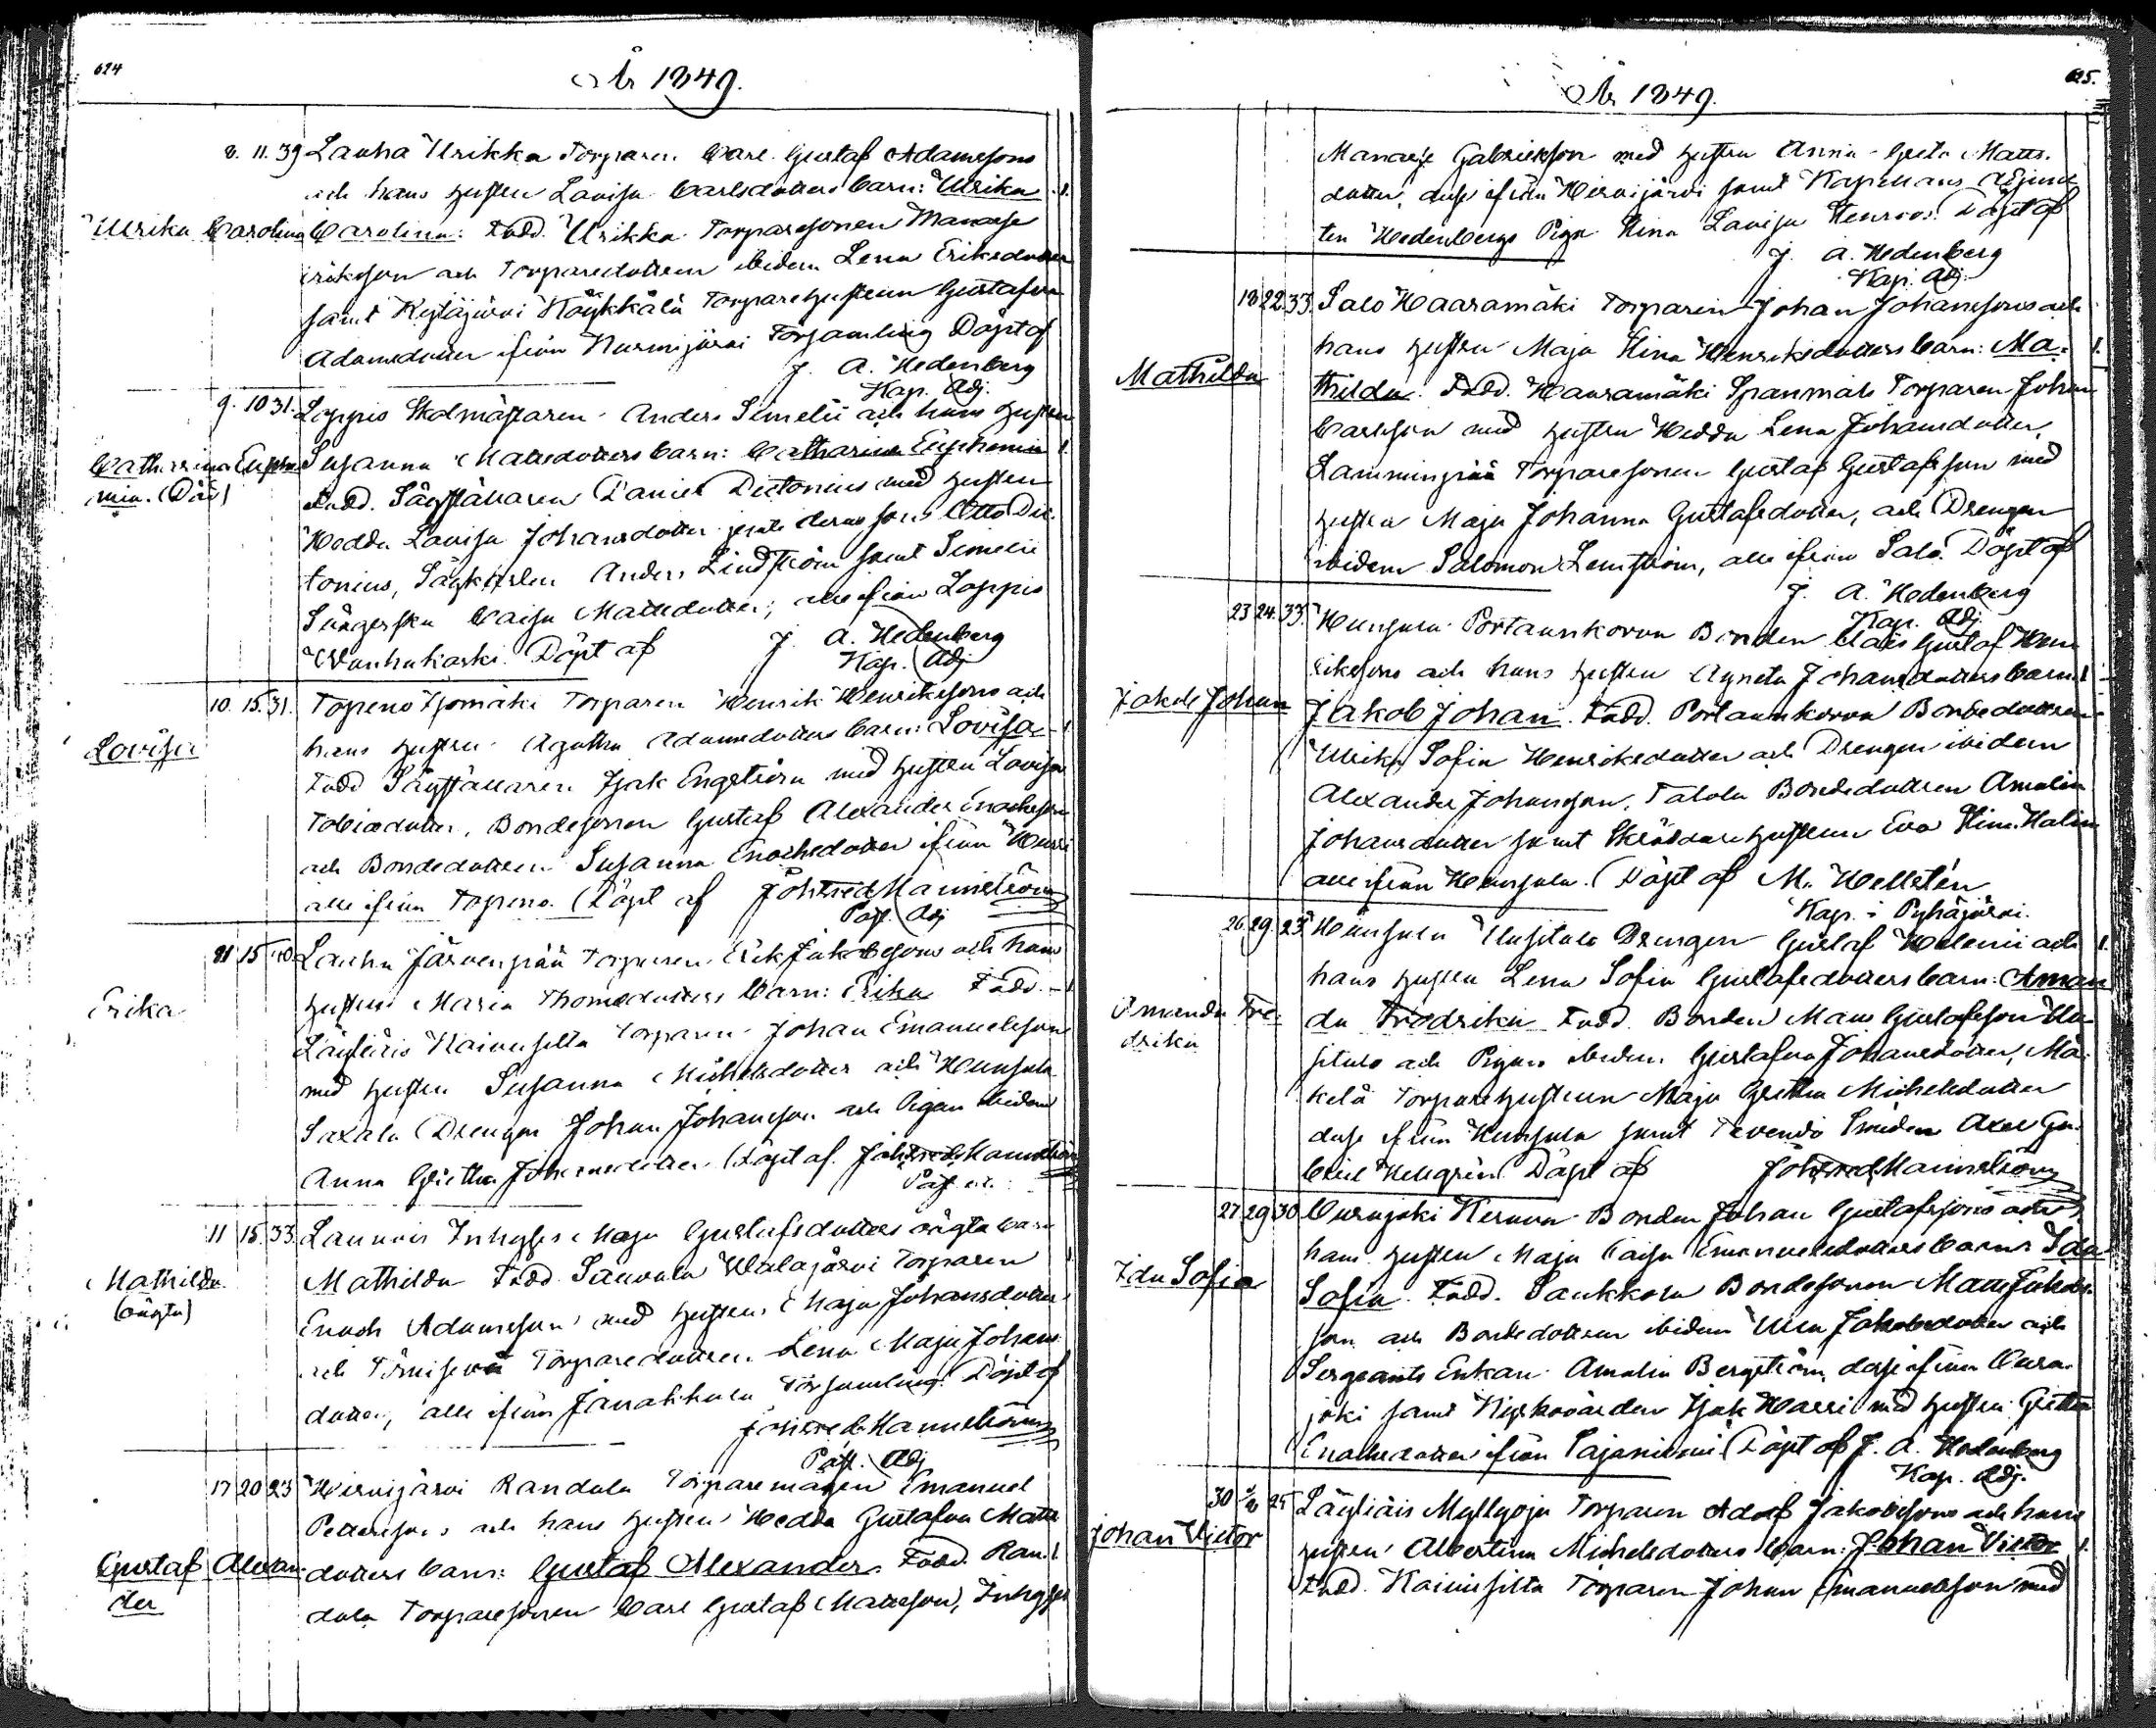 624
År 1849.
8. 11. 39 Lauha Urikka Torparen Carl Gustaf Adamssons
och hans hustru Lovisa Carlsdotters barn: Ulrika 1.
Ulrika Carolina Carolina: Fadd. Urikka Torparesonen Manasse
Eriksson och Torparedottren ibidem Lena Eriksdotter
samt Kytäjärvi Köykkälä Torparehustrun Gustafva
Adamsdotter ifrån Nurmijärvi Församling Döpt af
J. A. Hedenberg
Kap. Adj.
9. 10 31. Loppis Skolmästaren Anders Simelii och hans hustru
Catharina Euphe Susanna Mattsdotters barn: Catharina Euphemia 1.
mia. (Död) Fadd. Sågställaren Daniel Dictonius med hustru
Hedda Lovisa Johansdotter jemte deras son Otto Dic
tonius, Sågkarlen Anders Lindström samt Simelii
Caisa Mattsdotter, alle ifrån Loppis
Wanhakoski. Döpt af J. A. Hedenberg
Kap. Adj.
10. 15. 31. Topeno Isomäki Torparen Henrik Henrikssons och
hans hustru Agatha Adamsdotters barn: Lovisa 1
Lovisa
Fadd Sågställaren Isak Engström med hustru Lovisa
Tobiædotter, Bondesonen Gustaf Alexander Enochsson
och Bondedottren Susanna Enochsdotter ifrån
alle ifrån Topeno. Döpt af Joh: Fred Mannström
Past. Adj
11 15 40 Lauha Järvenpää Torparen Erik Jakobssons och hans
hustrus Maria Thomædotters barn: Erika Fadd. 1
Erika
Läyliäis Kainusilta Torparen Johan Emanuelsson
med hustru Susanna Michelsdotter och Hunsala
Saxala Drengen Johan Johansson och Pigan ibidem
Anna Gretha Johansdotter. Döpt af. Joh: Fred. Mannström
Past. Adj.
11 15. 33. Launois Inhyses Maja Gustafsdotters oägta barn
Mathilda Mathilda Fadd. Sauvala Walajärvi Torparen 1
(oägta)
Enoch Adamsson med hustru Maja Johansdotter
och Torparedottren Lena Maja Johans
dotter, alle ifrån Janakkala Församling. Döpt af
Joh: Fred. Mannström
Past. Adj
17 20 23 Hirvijärvi Randala Torparemågen Emanuel
Petterssons och hans hustrus Hedda Gustafva Matts
Gustaf Alexan dotters barn: Gustaf Alexander. Fadd. Ran 1.
der
dala Torparesonen Carl Gustaf Mattsson, Inhyses
625.
År 1849.
Manasse Gabrielsson med hustru Anna Greta Matts
dotter, desse ifrån Hirvijärvi samt Kaplans Adjunc
ten Hedenbergs Piga Stina Lovisa Stenroos. Döpt af
J. A. Hedenberg
Kap. Adj.
18 22 33. Salo Haaramäki Torparen Johan Johanssons och
hans hustru Maja Stina Henriksdotters barn: Ma- 1.
Mathilda thilda. Fadd. Haaramäki Spanmåls Torparen Johan
Carlsson med hustru Hedda Lena Johansdotter,
Lamminpää Torparesonen Gustaf Gustafsson med
hustru Maja Johanna Gustafsdotter, och Drengen
ibidem Salomon Lemström, alle ifrån Salo. Döpt af
J. A. Hedenberg
Kap. Adj.
23 24. 33. Hunsala Portaankorva Bonden Claës Gustaf Hen
rikssons och hans hustru Agneta Johansdotters barn 1
Jakob Johan Jakob Johan. Fadd. Portaankorva Bondedottren
Ulrika Sofia Henriksdotter och Drengen ibidem
Alexander Johansson, Talola Bondedottren Amalia
Johansdotter samt Skräddarehustrun Eva Stina Halin
alle ifrån Hunsala. Döpt af M. Hellstén
Kap. i Pyhäjärvi.
26 29. 23 Hunsala Uusitalo Drengen Gustaf Helenii och 1.
hans hustru Lena Sofia Gustafsdotters barn: Aman
Amanda Fre da Fredrika Fadd. Bonden Mats Gustafsson Uu
drika
sitalo och Pigan ibidem Gustafva Johansdotter, Mä
kelä Torparehustrun Maja Gretha Michelsdotter
desse ifrån Hunsala samt Tevändö Smeden Axel Ga
briel Hellgrén. Döpt af Joh: Fred. Mannström
27 29 30 Ourajoki Kerava Bonden Johan Gustafssons och 1.
hans hustru Maja Caisa Emanuelsdotters barn: Ida
Ida Sofia Sofia. Fadd. Saukkola Bondesonen Matts Jakobs
son och Bondedottren ibidem Ulla Jakobsdotter och
Sergeants Enkan Amalia Bergström, desse ifrån Oura
joki samt Kyrkovärden Isak Harri med hustru Gretha
Enochsdotter ifrån Sajaniemi. Döpt af J. A. Hedenberg
Kap. Adj.
30 25 Läyliäis Myllyoja Torparen Adolf Jakobssons och hans
Johan Victor hustru Albertina Michelsdotters barn: Johan Victor 1.
Fadd. Kainusilta Torparen Johan Emanuelsson med